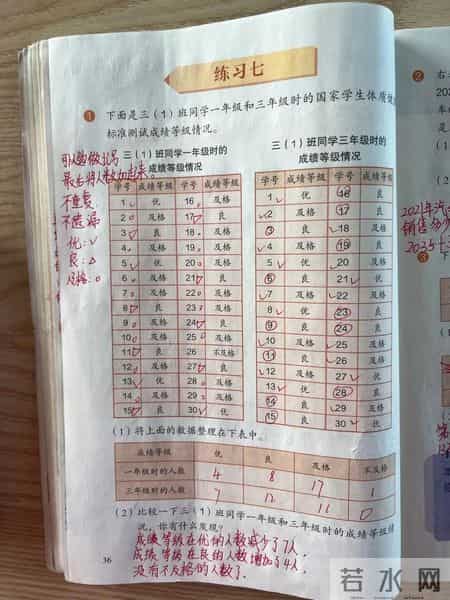 练习七
1 下面是三（1）班同学一年级和三年级时的国家学生体质健
标准测试成绩等级情况。
三（1）班同学一年级时的
成绩等级情况
三（1）班同学三年级时的
成绩等级情况
最后将人数加起来。
不重复
不遗漏
优：√
良：△
及格：○
学号 成绩等级 学号 成绩等级
1 优 16 及格
2 及格 17 良
3 良 18 及格
4 及格 19 及格
5 优 20 及格
6 及格 21 良
7 及格 22 及格
8 良 23 及格
9 及格 24 良
10 及格 25 及格
11 良 26 不及格
12 及格 27 良
13 优 28 及格
14 及格 29 及格
15 良 30 优
学号 成绩等级 学号 成绩等级
1 优 16 良
2 及格 17 良
3 良 18 及格
4 及格 19 良
5 优 20 及格
6 良 21 优
7 及格 22 及格
8 优 23 良
9 良 24 良
10 及格 25 及格
11 良 26 及格
12 及格 27 优
13 优 28 良
14 良 29 及格
15 良 30 优
（1）将上面的数据整理在下表中。
成绩等级 优 良 及格 不及格
一年级时的人数 4 8 17 1
三年级时的人数 7 12 11 0
（2）比较一下三（1）班同学一年级和三年级时的成绩等级情
况，你有什么发现？
成绩等级在优的人数减少了7人，
成绩等级在良的人数增加了4人，
没有不及格的人数了．
36
2
右
202
车
是
（1）
（2）
2021年汽
3
若水网